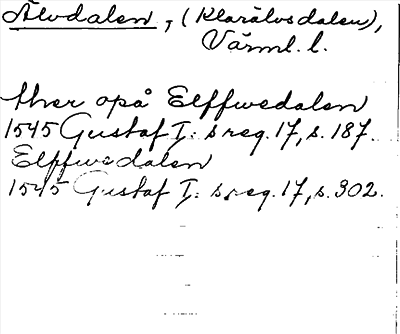 Älvdalen, (Klarälvsdalen),
Värml. l.
ther opå Elffwedalen
1545 Gustaf I: s reg. 17, s. 187.
Elffwedalen
1545 Gustaf I: s reg. 17, s. 302.